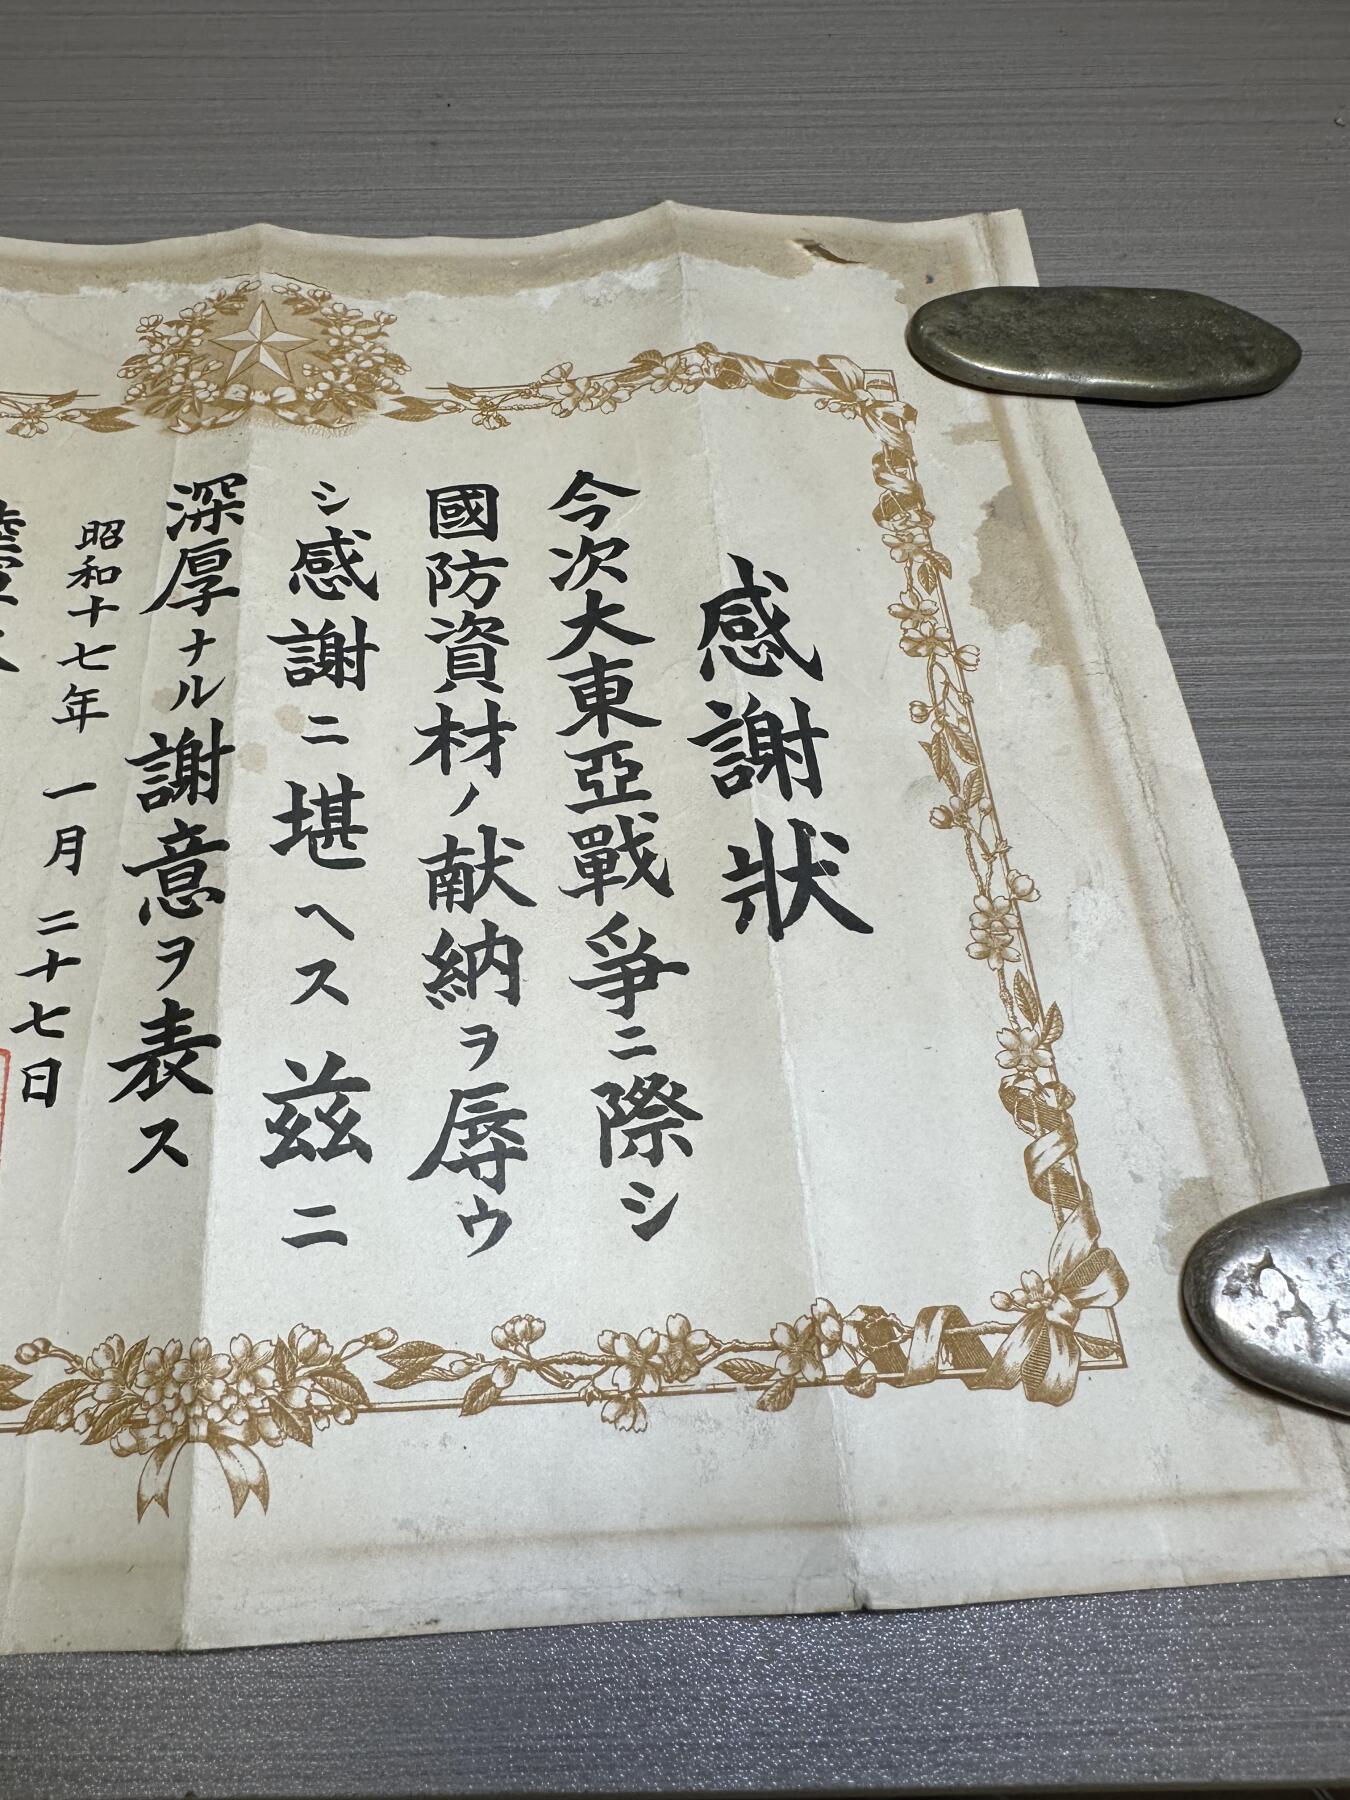 感謝狀
今次大東亞戰爭ニ際シ
國防資材ノ献納ヲ辱ウ
シ感謝ニ堪ヘス茲ニ
深厚ナル謝意ヲ表ス
昭和十七年一月二十七日